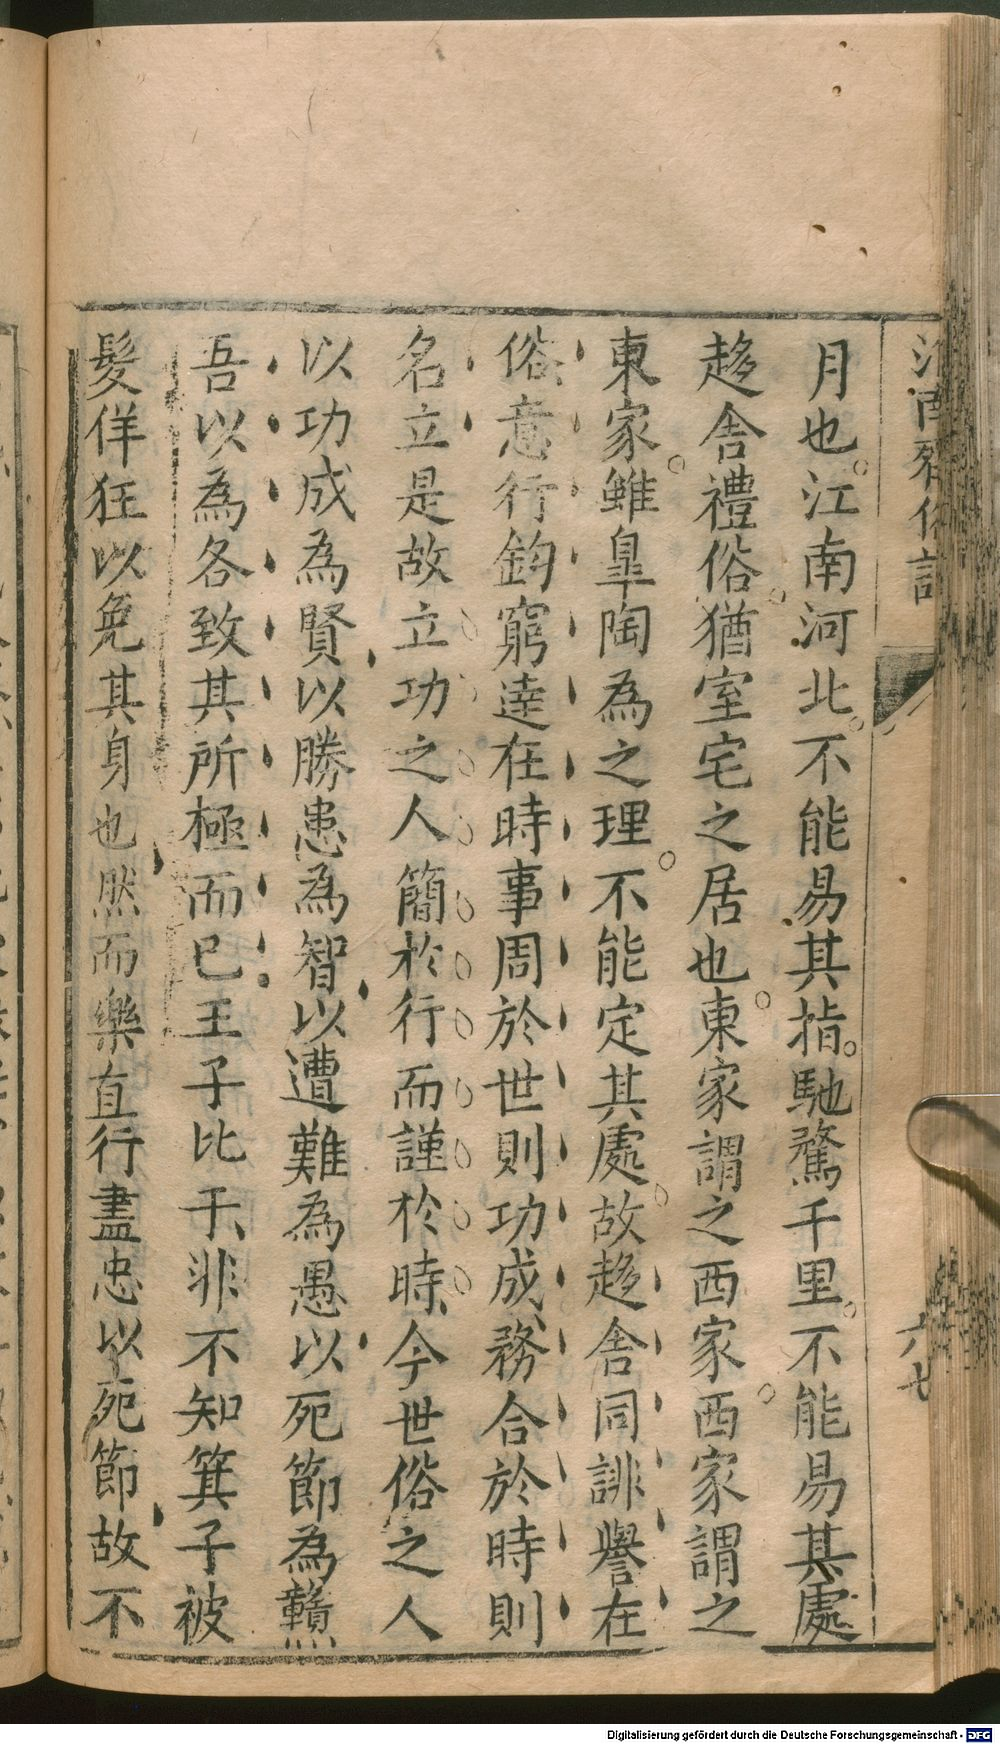 淮南齊俗訓
六七
月也江南河北不能易其指馳騖千里不能易其處
趍舍禮俗猶室宅之居也東家謂之西家西家謂之
東家雖臯陶為之理不能定其處故趍舍同誹譽在
俗意行鈞窮逹在時事周於世則功成務合於時則
名立是故立功之人簡於行而謹於時今世俗之人
以功成為賢以勝患為智以遭難為愚以死節為戇
吾以為各致其所極而已王子比干非不知箕子被
髮佯狂以免其身也然而樂直行盡忠以死節故不
Digitalisierung gefördert durch die Deutsche Forschungsgemeinschaft - DFG